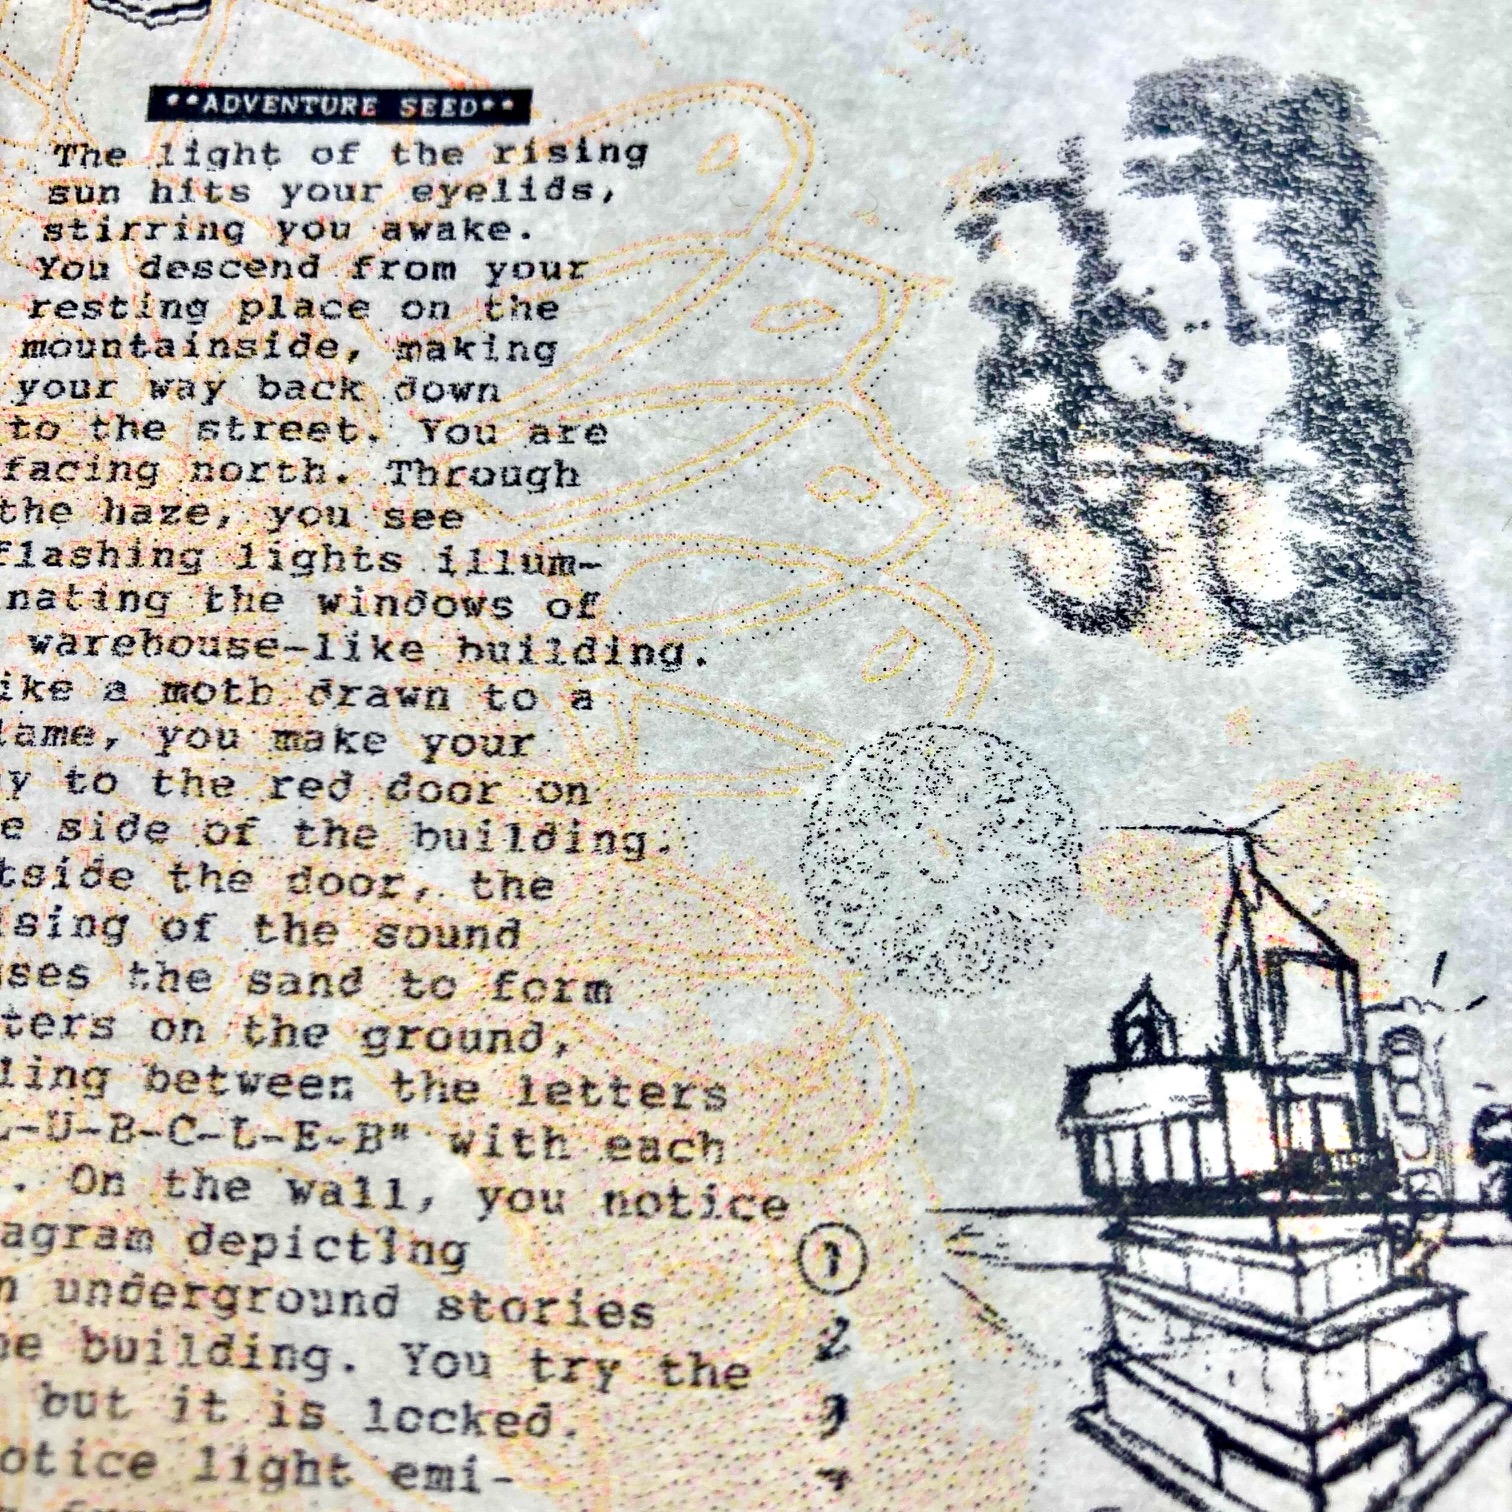 **ADVENTURE SEED**
The light of the rising
sun hits your eyelids,
stirring you awake.
You descend from your
resting place on the
mountainside, making
your way back down
to the street. You are
facing north. Through
the haze, you see
flashing lights illum-
nating the windows of
warehouse-like building.
ike a moth drawn to a
lame, you make your
y to the red door on
e side of the building.
tside the door, the
ising of the sound
ses the sand to form
ters on the ground,
ling between the letters
L-U-B-C-L-E-B" with each
. On the wall, you notice
agram depicting
n underground stories
he building. You try the
but it is locked.
otice light emi-
1
2
3